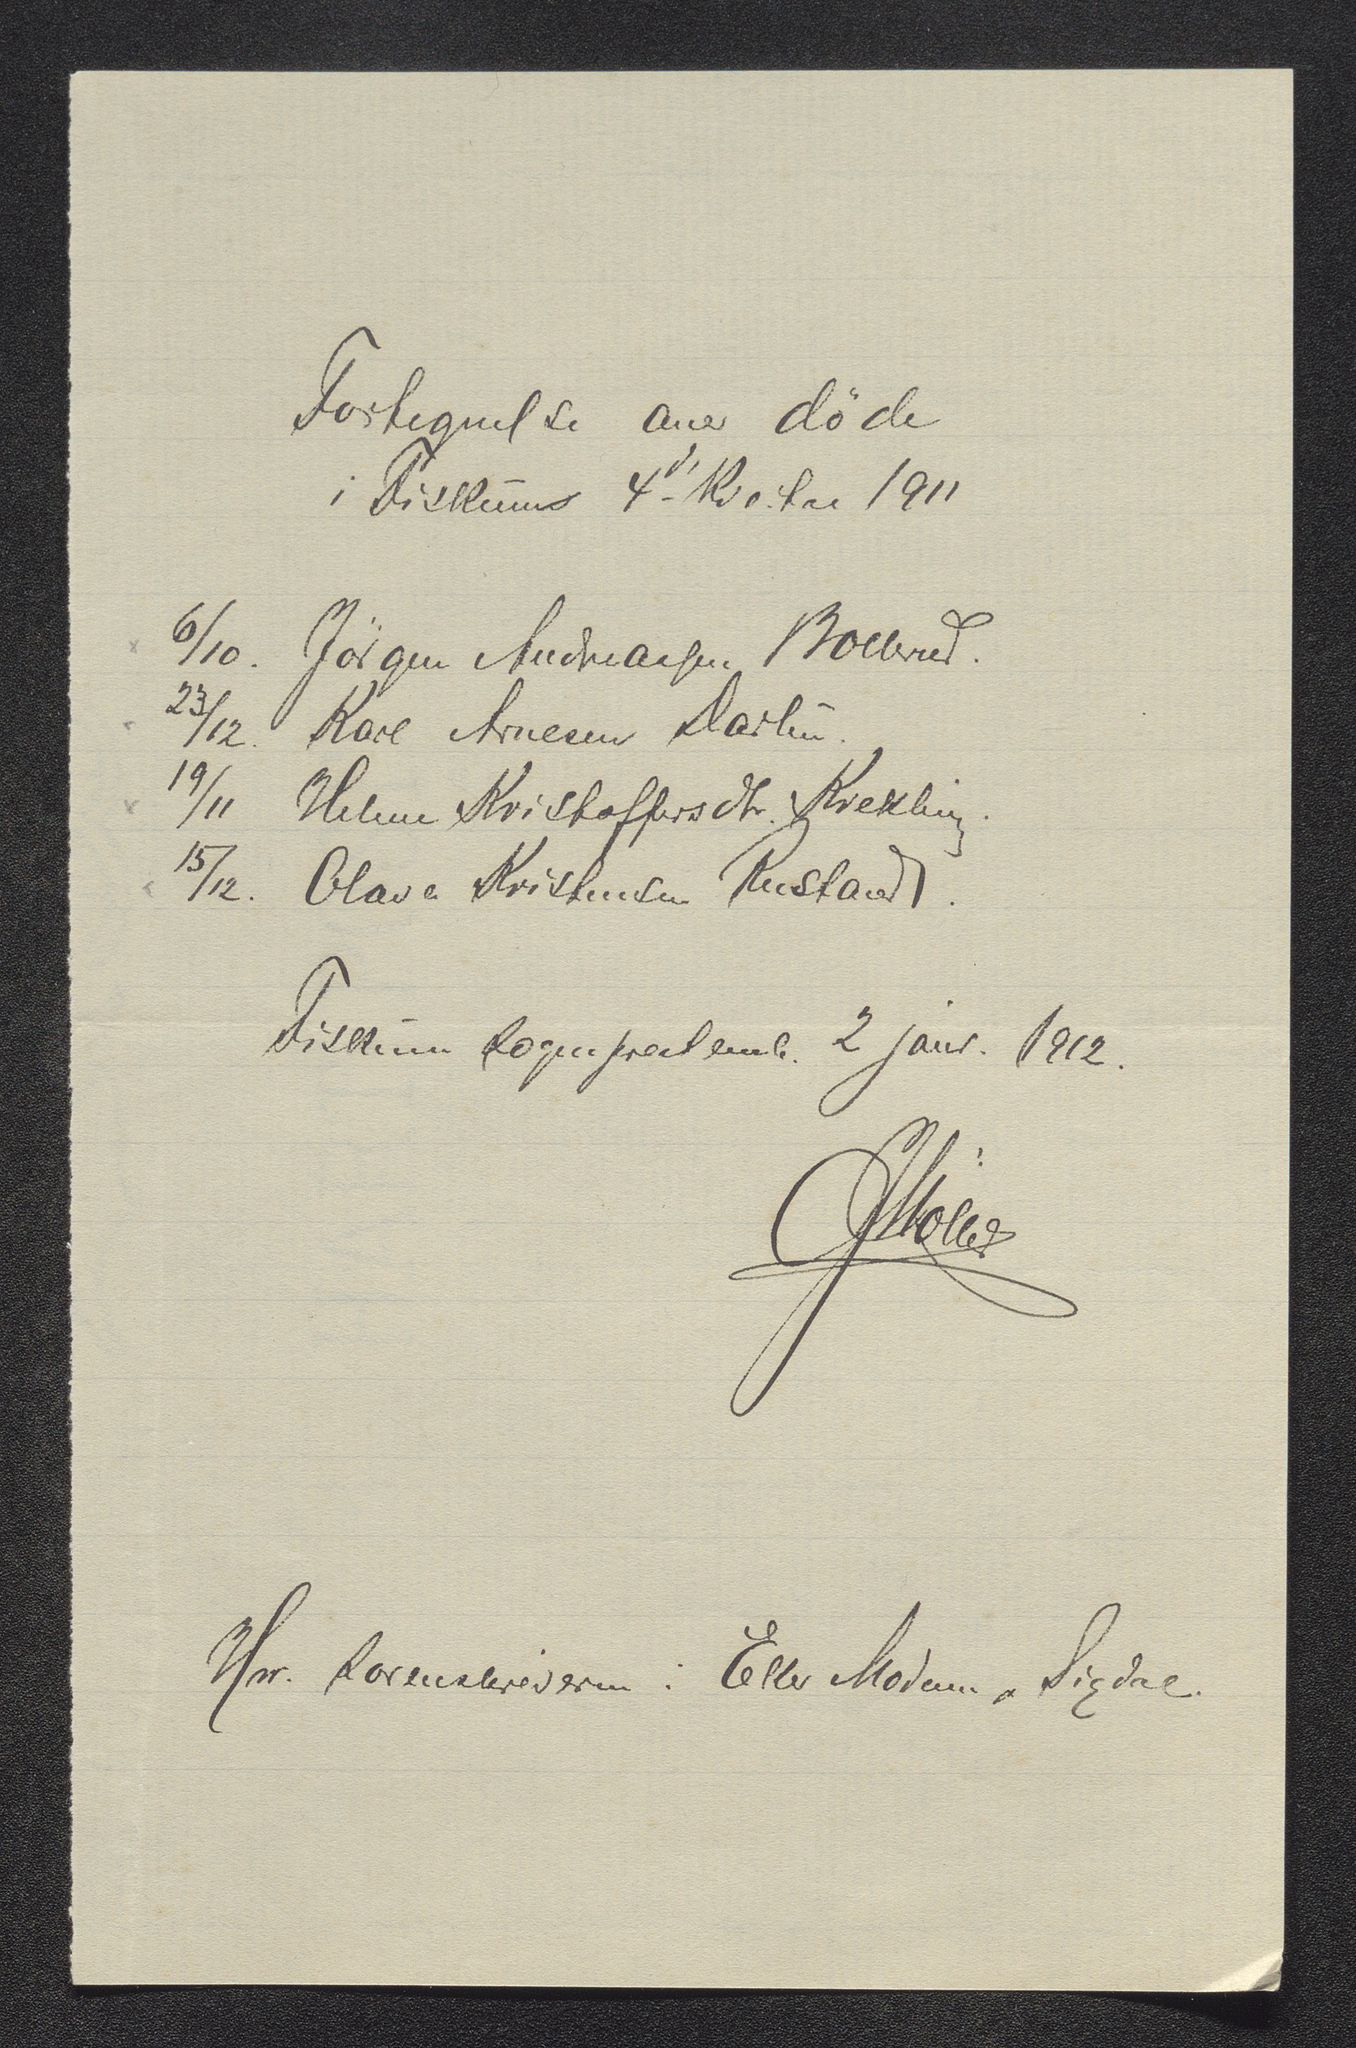 Fortegnelse over döde
i Fiskum 4d. Kvartal 1911
6/10. Jörgen Andreassen Bollerud.
23/12. Karl Arnesen Darbu.
19/11 Helene Kristoffersdtr. Krekling.
15/12. Olava Kristensen Rustand.
Fiskum sogneprestemb. 2 janr. 1912.
Möller
Hrr. sorenskriveren i Eker Modum & Sigdal.